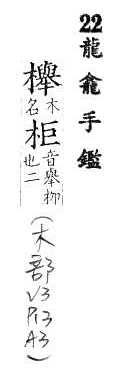 22龍龕手鑑
櫸木名柜音舉柳也二
(木部V3P13A3)